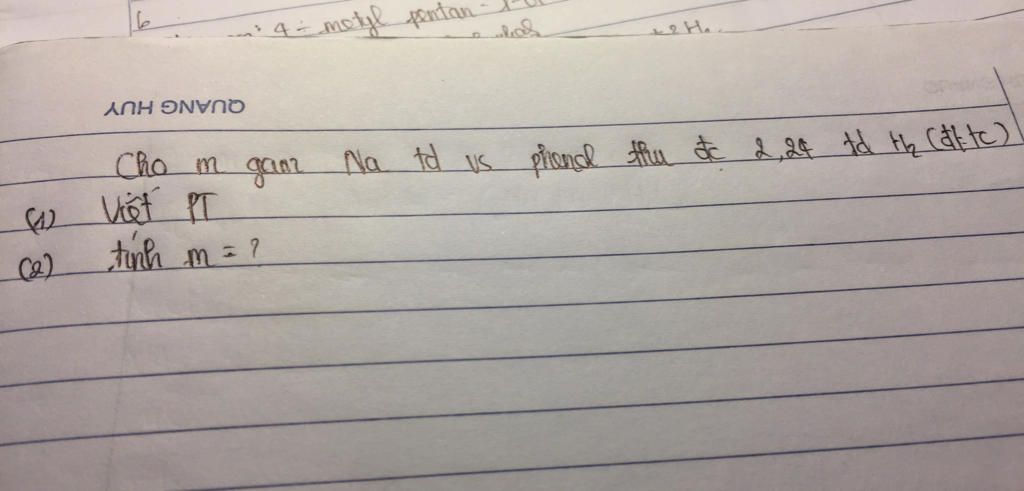 6
4 - motyl pentan - 1-
+ 2H
QUANG HUY
Cho m gam Na td vs phenol thu đc 2,24 td H₂ (đktc)
(1) Viết PT
(2) tính m = ?